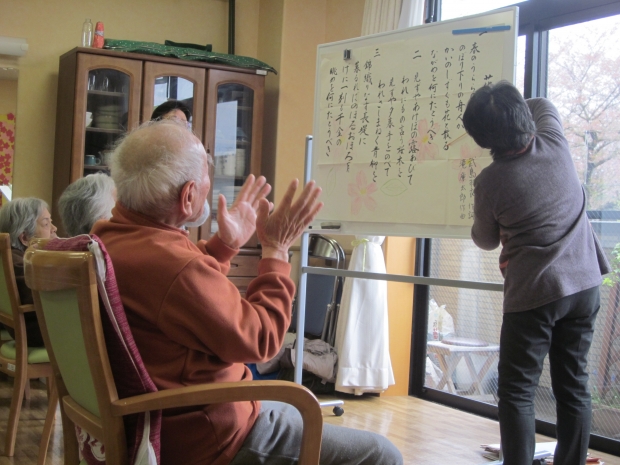 花
一
春のうらら
のぼり下りの舟人が
かいのしずくも花と散る
ながめを何にたとうべき
二
見ずやあけぼの露あびて
われにもの言う桜木を
見ずや夕暮手をのべて
われさしまねく青柳を
三
錦織りなす長堤に
暮るればのぼるおぼろ月
げに一刻も千金の
眺めを何にたとうべき